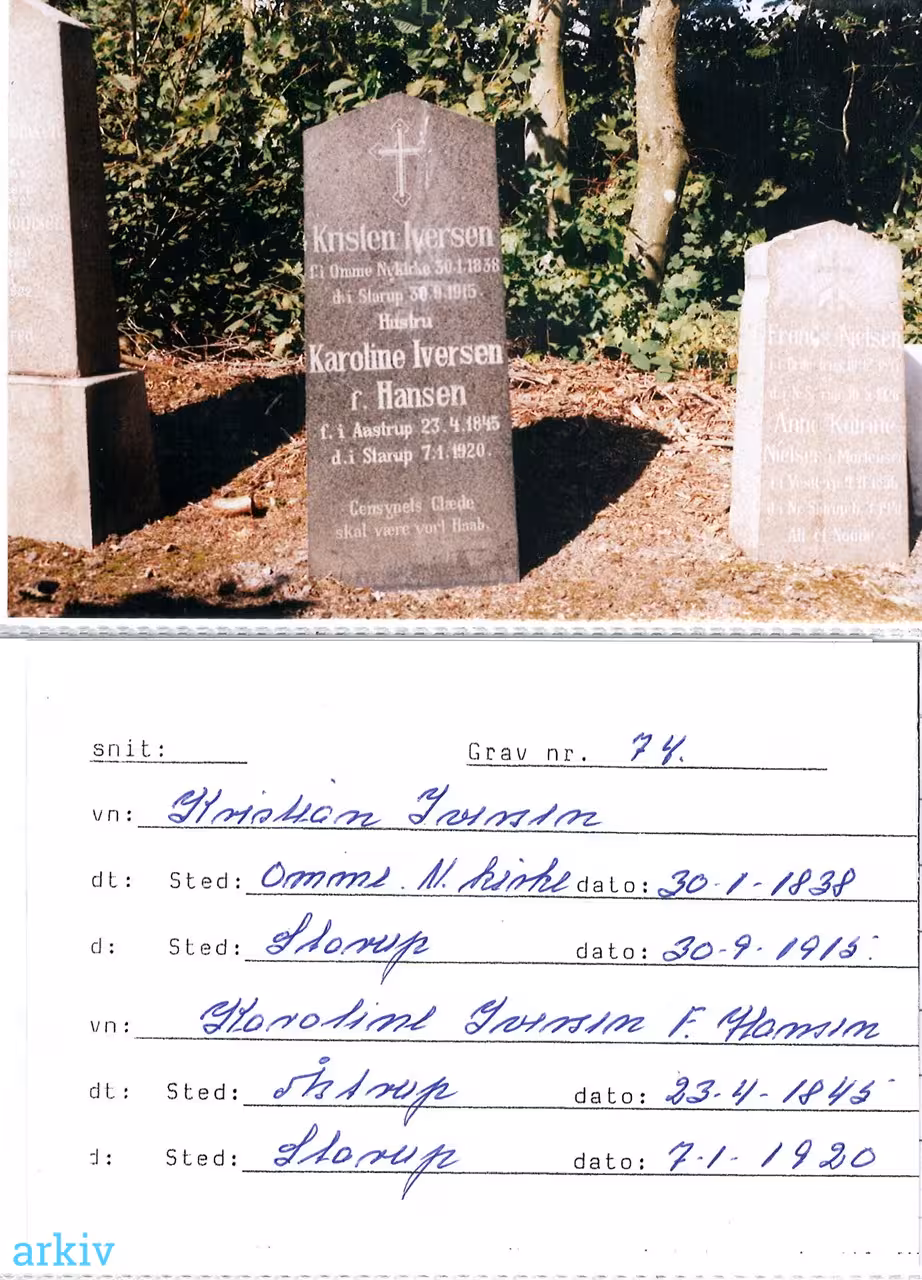 Kristen Iversen
f.i Omme Nykirke 30.1.1838
d.i Starup 30.9.1915.
Hustru
Karoline Iversen
f. Hansen
f. i Aastrup 23.4.1845
d.i Starup 7.1.1920.
Gensynets Glæde
skal være vort Haab.
Nielsen
Anne
Nielsen
snit:
Grav nr. 74.
vn: Kristian Iversen
dt: Sted: Omme. N. kirke dato: 30-1-1838
d: Sted: Starup dato: 30-9-1915.
vn: Karoline Iversen F. Hansen
dt: Sted: Åstrup dato: 23-4-1845
d: Sted: Starup dato: 7-1-1920
arkiv